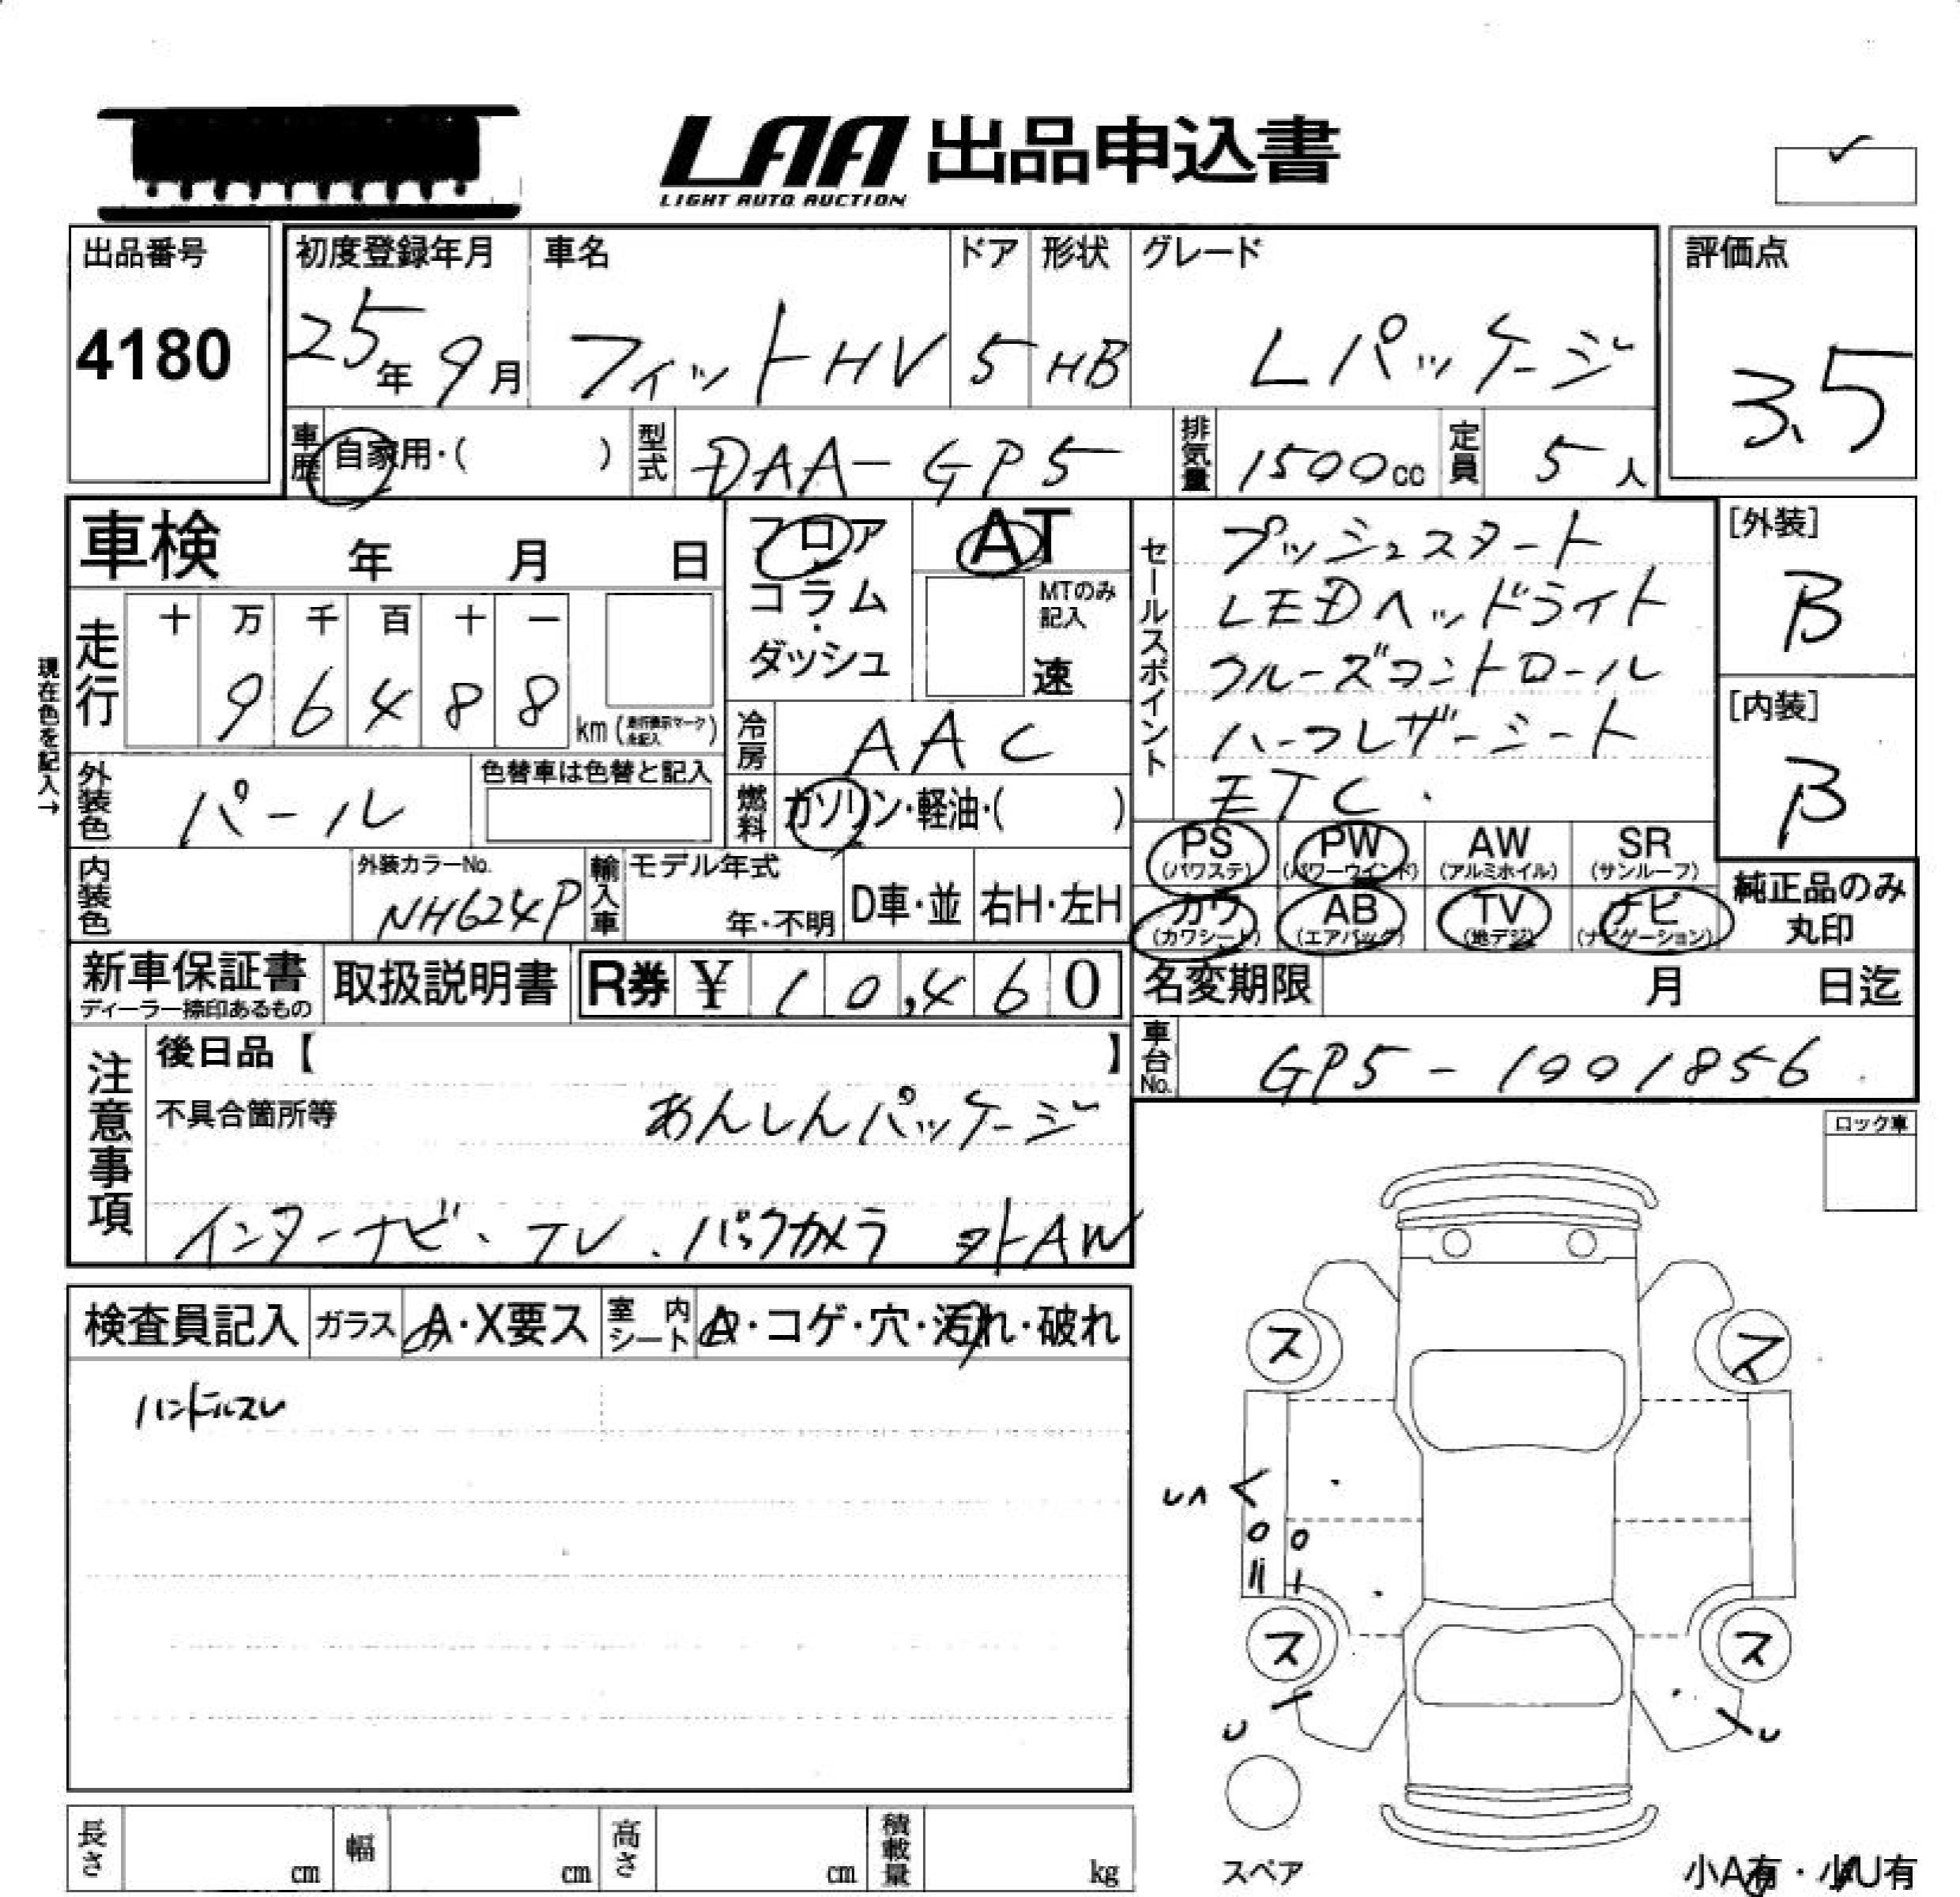 LAA 出品申込書
LIGHT AUTO AUCTION
出品番号
4180
初度登録年月
25年9月
車名
フィットHV
ドア
5
形状
HB
グレード
Lパッケージ
評価点
3.5
車歴 自家用・( )
型式 DAA-GP5
排気量 1500cc
定員 5人
車検 年 月 日
フロア
コラム
・
ダッシュ
AT
MTのみ
記入
速
セールスポイント
プッシュスタート
LEDヘッドライト
クルーズコントロール
ハーフレザーシート
ETC.
[外装]
B
[内装]
B
現在色を記入→
走行
十 万 千 百 十 一
9 6 4 8 8 km(走行表示マーク未記入)
冷房 AAC
外装色 パール
色替車は色替と記入
燃料 ガソリン・軽油・( )
内装色
外装カラーNo.
NH624P
輸入車
モデル年式
年・不明
D車・並
右H・左H
PS
(パワステ)
PW
(パワーウインド)
AW
(アルミホイル)
SR
(サンルーフ)
カワ
(カワシート)
AB
(エアバッグ)
TV
(地デジ)
ナビ
(ナビゲーション)
純正品のみ
丸印
新車保証書
ディーラー捺印あるもの
取扱説明書
R券 ¥ 10,460
名変期限 月 日迄
車台No. GP5-1001856
注意事項
後日品【 】
不具合箇所等 あんしんパッケージ
インターナビ、TV、バックカメラ 外AW
ロック車
検査員記入 ガラス A・X要ス 室内シート A・コゲ・穴・汚れ・破れ
ハンドルスレ
ス ス
ス ス
U
U
スペア
長さ cm 幅 cm 高さ cm 積載量 kg
小A有・小U有